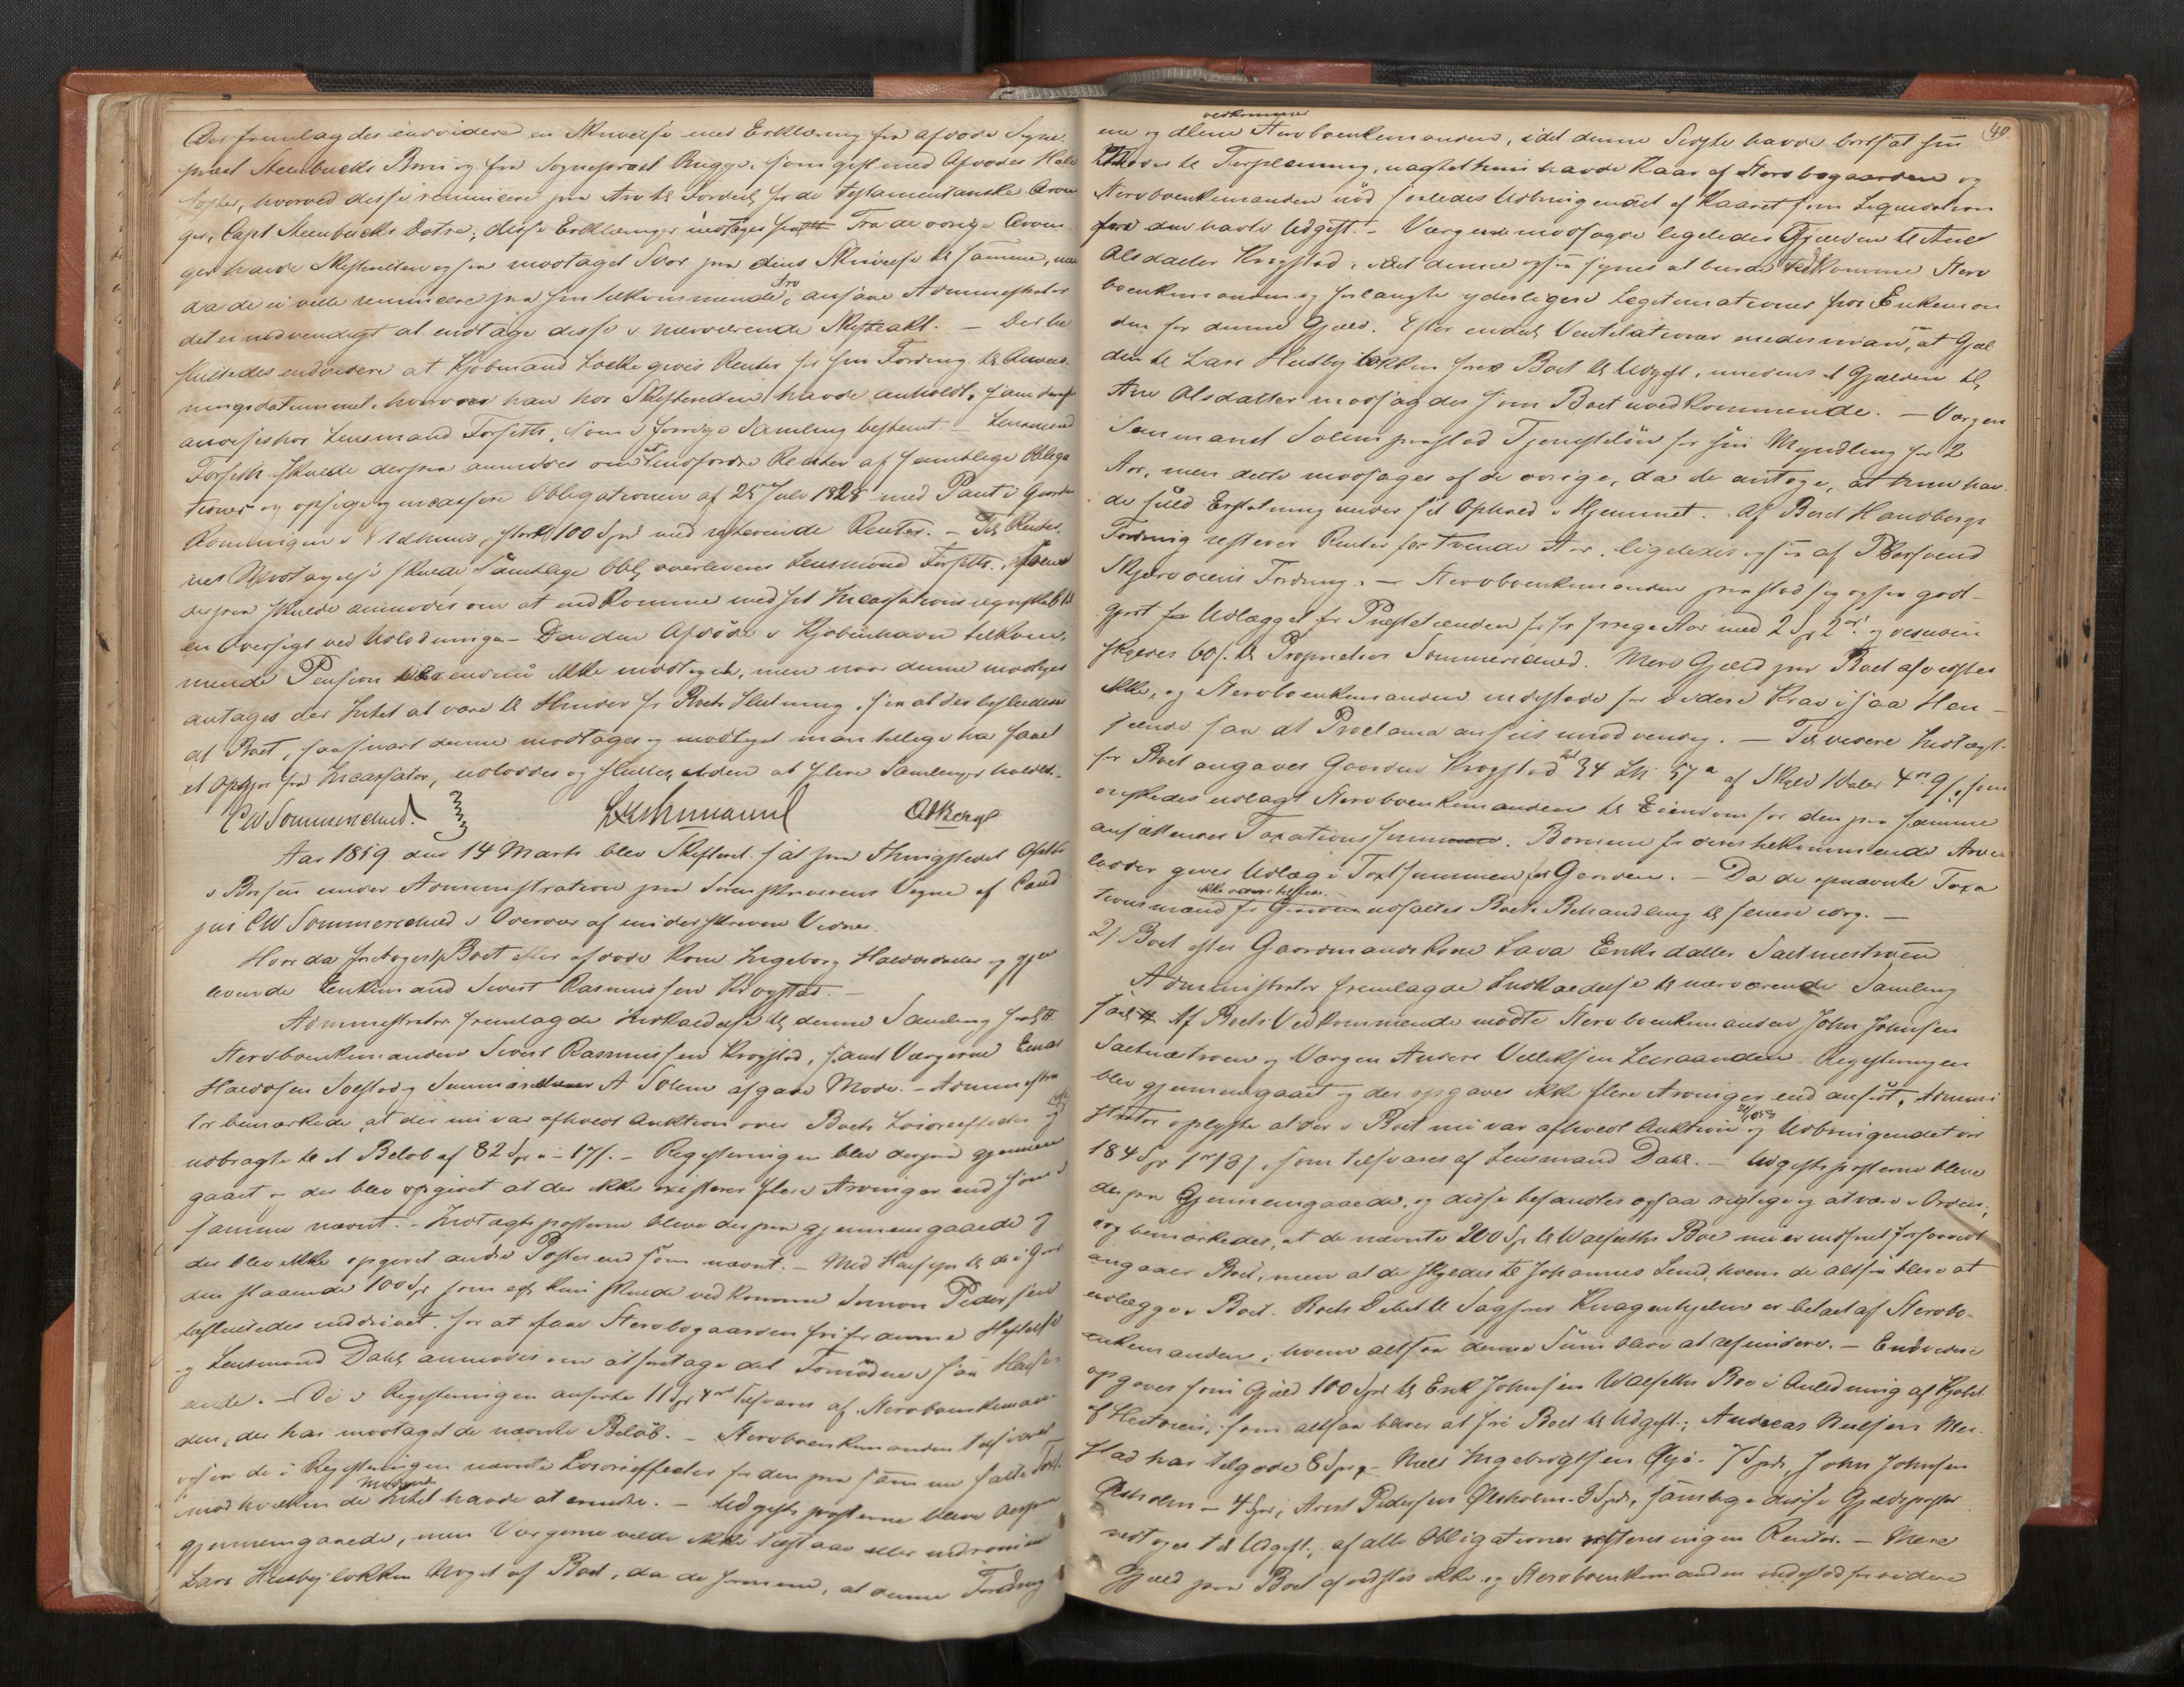 Der fremlagdes endvidere en Skrivelse med Erklæring fra afdøde Sogne
præst Steenbucks Børn og fra Sognepræst Bugge, som gift med Afdødes Halv
søster, hvorved disse renuncere paa Arv til Fordeel for de testamentariske Arvin
ger, Capt Steenbucks Døtre; disse Erklæringer indtages Fra de øvrige Arvin
ger havde Skifteretten ogsaa modtaget Svar paa dens Skrivelse til samme, men
da de ei vilde renuncere paa sin tilkommende Arv, ansaae Administrator
det ei nødvendigt at indtage disse i nærværende Skifteakt. — Det be
sluttedes endvidere at Kjøbmand Locke gives Renter for sin Fordring til Anvis
ningsdatummet, hvorom han hos Skifteretten havde anholdt, samt derfor
anvises hos Lensmand Forseth, som i forrige Samling bestemt. — Lensmand
Forseth skulde derpaa anmodes om at indfordre Renter af samtlige Obliga
tioner og opsige og incassere Obligationen af 25 Juli 1828 med Pant i Gaarden
Rønningen i , stor 100 Spd med resterende Renter. — Til Renter
nes Modtagelse skulde Samtlige Obl. overleveres Lensmand Forseth, som
derpaa skulde anmodes om at indkomme med sit Incassationsregnskab til
en Oversigt ved Udlodningen — Den den Afdøde i Kjøbenhavn tilkom
mende Pension er endnu ikke modtaget, men naar denne modtages
antages der Intet at være til Hinder for Boets Slutning, saa at der besluttedes
at Boet, saasnart denne modtages og modtaget man tillige har faaet
et Opgjør fra Incassator, udloddes og sluttes uden at flere Samlinger holdes.
C W Sommerschild. Lushmannl OABerge
Aar 1859 den 14 Marts blev Skifteret sat paa Thingstedet
i Børsen under Administration paa Sorenskriverens Vegne af Cand
jur C W Sommerschild i Overvær af underskrevne Vidner.
Hvor da foretoges 1) Boet efter afdøde Kone Ingeborg Halvorsdatter og gjen
levende Enkemand Sivert Rasmussen Krogstad. —
Administrator fremlagde Indkaldelse til denne Samling
Stervboenkemanden Sivert Rasmussen Krogstad, samt Værgerne Einar
Halvorsen Solstad og Seminarist A Solem afgav Møde. — Administra
tor bemærkede, at der nu var afholdt Auktion over Boets Løsøreeffecter og
udbragte til et Beløb af 82 Spd " – 17 s. — Registeringen blev derpaa gjennem
gaaet og der blev opgivet at der ikke existerer flere Arvinger end som i
samme nævnt. — Indtægtsposterne bleve derpaa gjennemgaaede og
der blev ikke opgivet andre Poster end som nævnt. — Med Hensyn til de i Gaar
den staaende 100 Spd som egl. kun skulde vedkomme Simon Pedersen
besluttedes inddrivet, for at faae Stervbogaarden fri for denne Heftelse
og Lensmand Dahl anmodes om at foretage det Fornødne i saa Hen
seende. — De i Registeringen anførte 11 Spd 4 ort tilsvares af Stervboenkeman
den, der har modtaget de nævnte Beløb. — Stervboenkemanden tilsvarer
ogsaa de i Registeringen nævnte Løsøreeffecter for den paa samme satte Taxt
imod hvilken de Mødende Intet havde at erindre. — Udgiftsposterne bleve derpaa
gjennemgaaede, men Værgerne vilde ikke tilstaae eller indrømme
Lars Husbyløkken Noget af Boet, da de formene, at denne Fordring
40
ene og alene vedkommer Stervboenkemanden, idet denne Sidste havde bortsat sin
til Forpleining, uagtet hun havde Kaar af Stervbogaarden og
Stervboenkemanden nød saaledes Udbringendet af Kaaret som Liquidation
for den havte Udgift. — Værgerne modsagde ligeledes Gjælden til Ane
Olsdatter Krogstad, idet denne ogsaa synes at burde vedkomme Sterv
boenkemanden og forlangte yderligere Legitimationer fra Enkeman
den for denne Gjæld. Efter endeel Ventilationer enedes man om, at Gjæl
den til Lars Husbyløkken føres Boet til Udgift, imedens at Gjælden til
Ane Olsdatter modsagdes som Boet uvedkommende. — Værgen
Seminarist Solem paastod Tjenesteløn for sin Myndling for 2
Aar, men dette modsages af de øvrige, da de antoge, at hun hav
de fuld Erstatning under sit Ophold i Hjemmet. Af Berit Handbergs
Fordring resterer Renter for tvende Aar, ligeledes ogsaa af
Skjervoldens Fordring. — Stervboenkemanden paastod sig ogsaa god-
gjort Udlægget for Præstetienden for forrige Aar med 2 Spd 2 ort og desuden
skyldes 60 s. til Proprietær Sommerschild. Mere Gjæld paa Boet afvidstes
ikke, og Stervboenkemanden indestode for videre Krav i saa Hen-
seende saa at Proclama ansees unødvendig. — Til videre Indtægt
for Boet angaves Gaarden Krogstad Mat 34 Lb 57 a af Skyld 1 Daler 4 ort 9 s., som
ønskedes udlagt Stervboenkemanden til Eiendom for den paa samme
ansættendes Taxationssum. Børnene for deres tilkommende Arve
lodder gives Udlæg i Taxtsummen for Gaarden. — Da de opnævnte Taxa
tionsmænd ikke vare tilstede udsattes Boets Behandling til senere idag. —
2) Boet efter Gaardmandskone Lava Eriksdatter Sætnestrøen
Administrator fremlagde Indkaldelse til nærværende Samling
Af Boets Vedkommende mødte Stervboenkemanden John Johnsen
Sætnestrøen og Værgen Anders Lerraanden. Registeringen
blev gjennemgaaet og der opgaves ikke flere Arvinger end anført. Admini
strator oplyste at der i Boet nu var afholdt Auktion og Udbringendet var
184 Spd 1 ort 13 s., som tilsvares af Lensmand Dahl. — Udgiftsposterne bleve
derpaa gjennemgaaede, og disse befandtes ogsaa rigtige og at være i Orden,
og bemærkedes, at de nævnte 200 Spd til Walseths Boe nu er indfriet forsaavidt
angaaer Boet, men at de skyldes til Johannes Lund, hvem de altsaa blive at
udlægges i Boet. Boets Debet til Sagfører Knagenhjelm er betalt af Stervbo-
enkemanden, hvem altsaa denne Sum blive at refundere. — Endvidere
opgaves som Gjæld 100 Spd til Erik Johnsen Walseths Boe i Anledning af Kjøbet
af Hestøien, som altsaa bliver at føre Boet til Udgift; Andreas Nielsen Mer
stad har tilgode 8 Spd, – Niels Ingebrigtsen Øyø – 7 Spd, John Johnsen
Øxholm – 4 Spd, Arnt Pedersen Øxholm – 3 Spd, samtlige disse Gjældsposter
vedtoges til Udgift; af alle Obligationer resteres ingen Renter. — Mere
Gjæld paa Boet afvidstes ikke og Stervboenkemanden indestod for videre